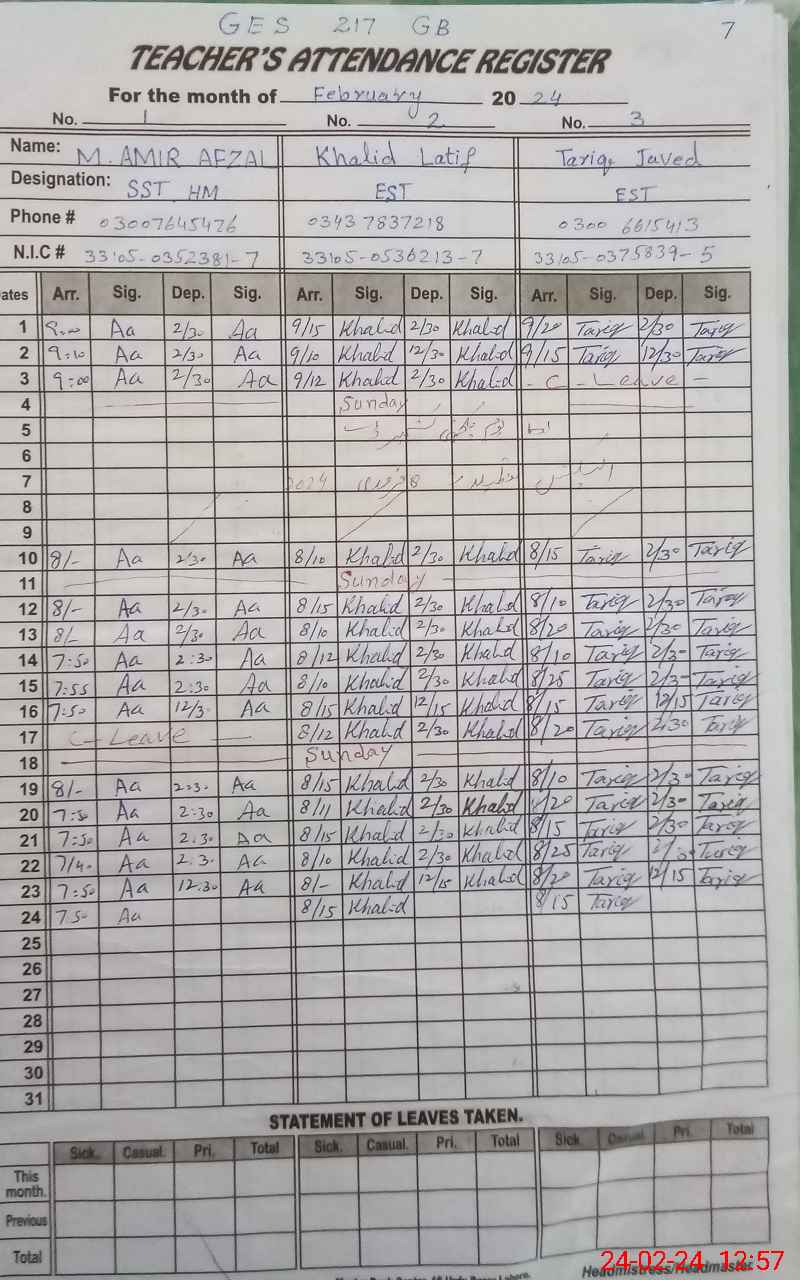 GES 217 GB 7
TEACHER'S ATTENDANCE REGISTER
For the month of February 20 24
No. 1 No. 2 No. 3
Name: M. AMIR AFZAL Khalid Latif Tariq Javed
Designation: SST HM EST EST
Phone # 03007645476 03437837218 0300 6615413
N.I.C # 33105-0352381-7 33105-0536213-7 33105-0375839-5
ates Arr. Sig. Dep. Sig. Arr. Sig. Dep. Sig. Arr. Sig. Dep. Sig.
1 9:00 Aa 2/30 Aa 9/15 Khalid 2/30 Khalid 9/20 Tariq 2/30 Tariq
2 9:10 Aa 2/30 Aa 9/10 Khalid 12/30 Khalid 9/15 Tariq 12/30 Tariq
3 9:00 Aa 2/30 Aa 9/12 Khalid 2/30 Khalid - C - Leave -
4 Sunday
5
6
7 2024 فروری 8
8
9
10 8/- Aa 2/30 Aa 8/10 Khalid 2/30 Khalid 8/15 Tariq 2/30 Tariq
11 Sunday
12 8/- Aa 2/30 Aa 8/15 Khalid 2/30 Khalid 8/10 Tariq 2/30 Tariq
13 8/- Aa 2/30 Aa 8/10 Khalid 2/30 Khalid 8/20 Tariq 2/30 Tariq
14 7:50 Aa 2:30 Aa 8/12 Khalid 2/30 Khalid 8/10 Tariq 2/30 Tariq
15 7:55 Aa 2:30 Aa 8/10 Khalid 2/30 Khalid 8/25 Tariq 2/30 Tariq
16 7:50 Aa 12/3 Aa 8/15 Khalid 12/15 Khalid 8/15 Tariq 12/15 Tariq
17 C - Leave - 8/12 Khalid 2/30 Khalid 8/20 Tariq 2/30 Tariq
18 Sunday
19 8/- Aa 2:30 Aa 8/15 Khalid 2/30 Khalid 8/10 Tariq 2/30 Tariq
20 7:50 Aa 2:30 Aa 8/11 Khalid 2/30 Khalid 8/20 Tariq 2/30 Tariq
21 7:50 Aa 2:30 Aa 8/15 Khalid 2/30 Khalid 8/15 Tariq 2/30 Tariq
22 7/40 Aa 2.3. Aa 8/10 Khalid 2/30 Khalid 8/25 Tariq 2/30 Tariq
23 7:50 Aa 12.30 Aa 8/- Khalid 12/15 Khalid 8/20 Tariq 12/15 Tariq
24 7:50 Aa 8/15 Khalid 8/15 Tariq
25
26
27
28
29
30
31
STATEMENT OF LEAVES TAKEN.
Sick. Casual. Pri. Total Sick. Casual. Pri. Total Sick Casual. Pri. Total
This month.
Previous
Total
Headmistress/Headmaster
24-02-24 12:57